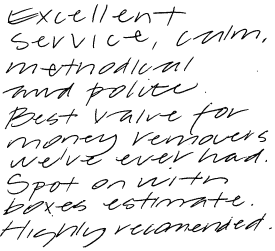 Excellent
service, calm,
methodical
and polite.
Best value for
money removers
we've ever had.
Spot on with
boxes estimate.
Highly recomended.